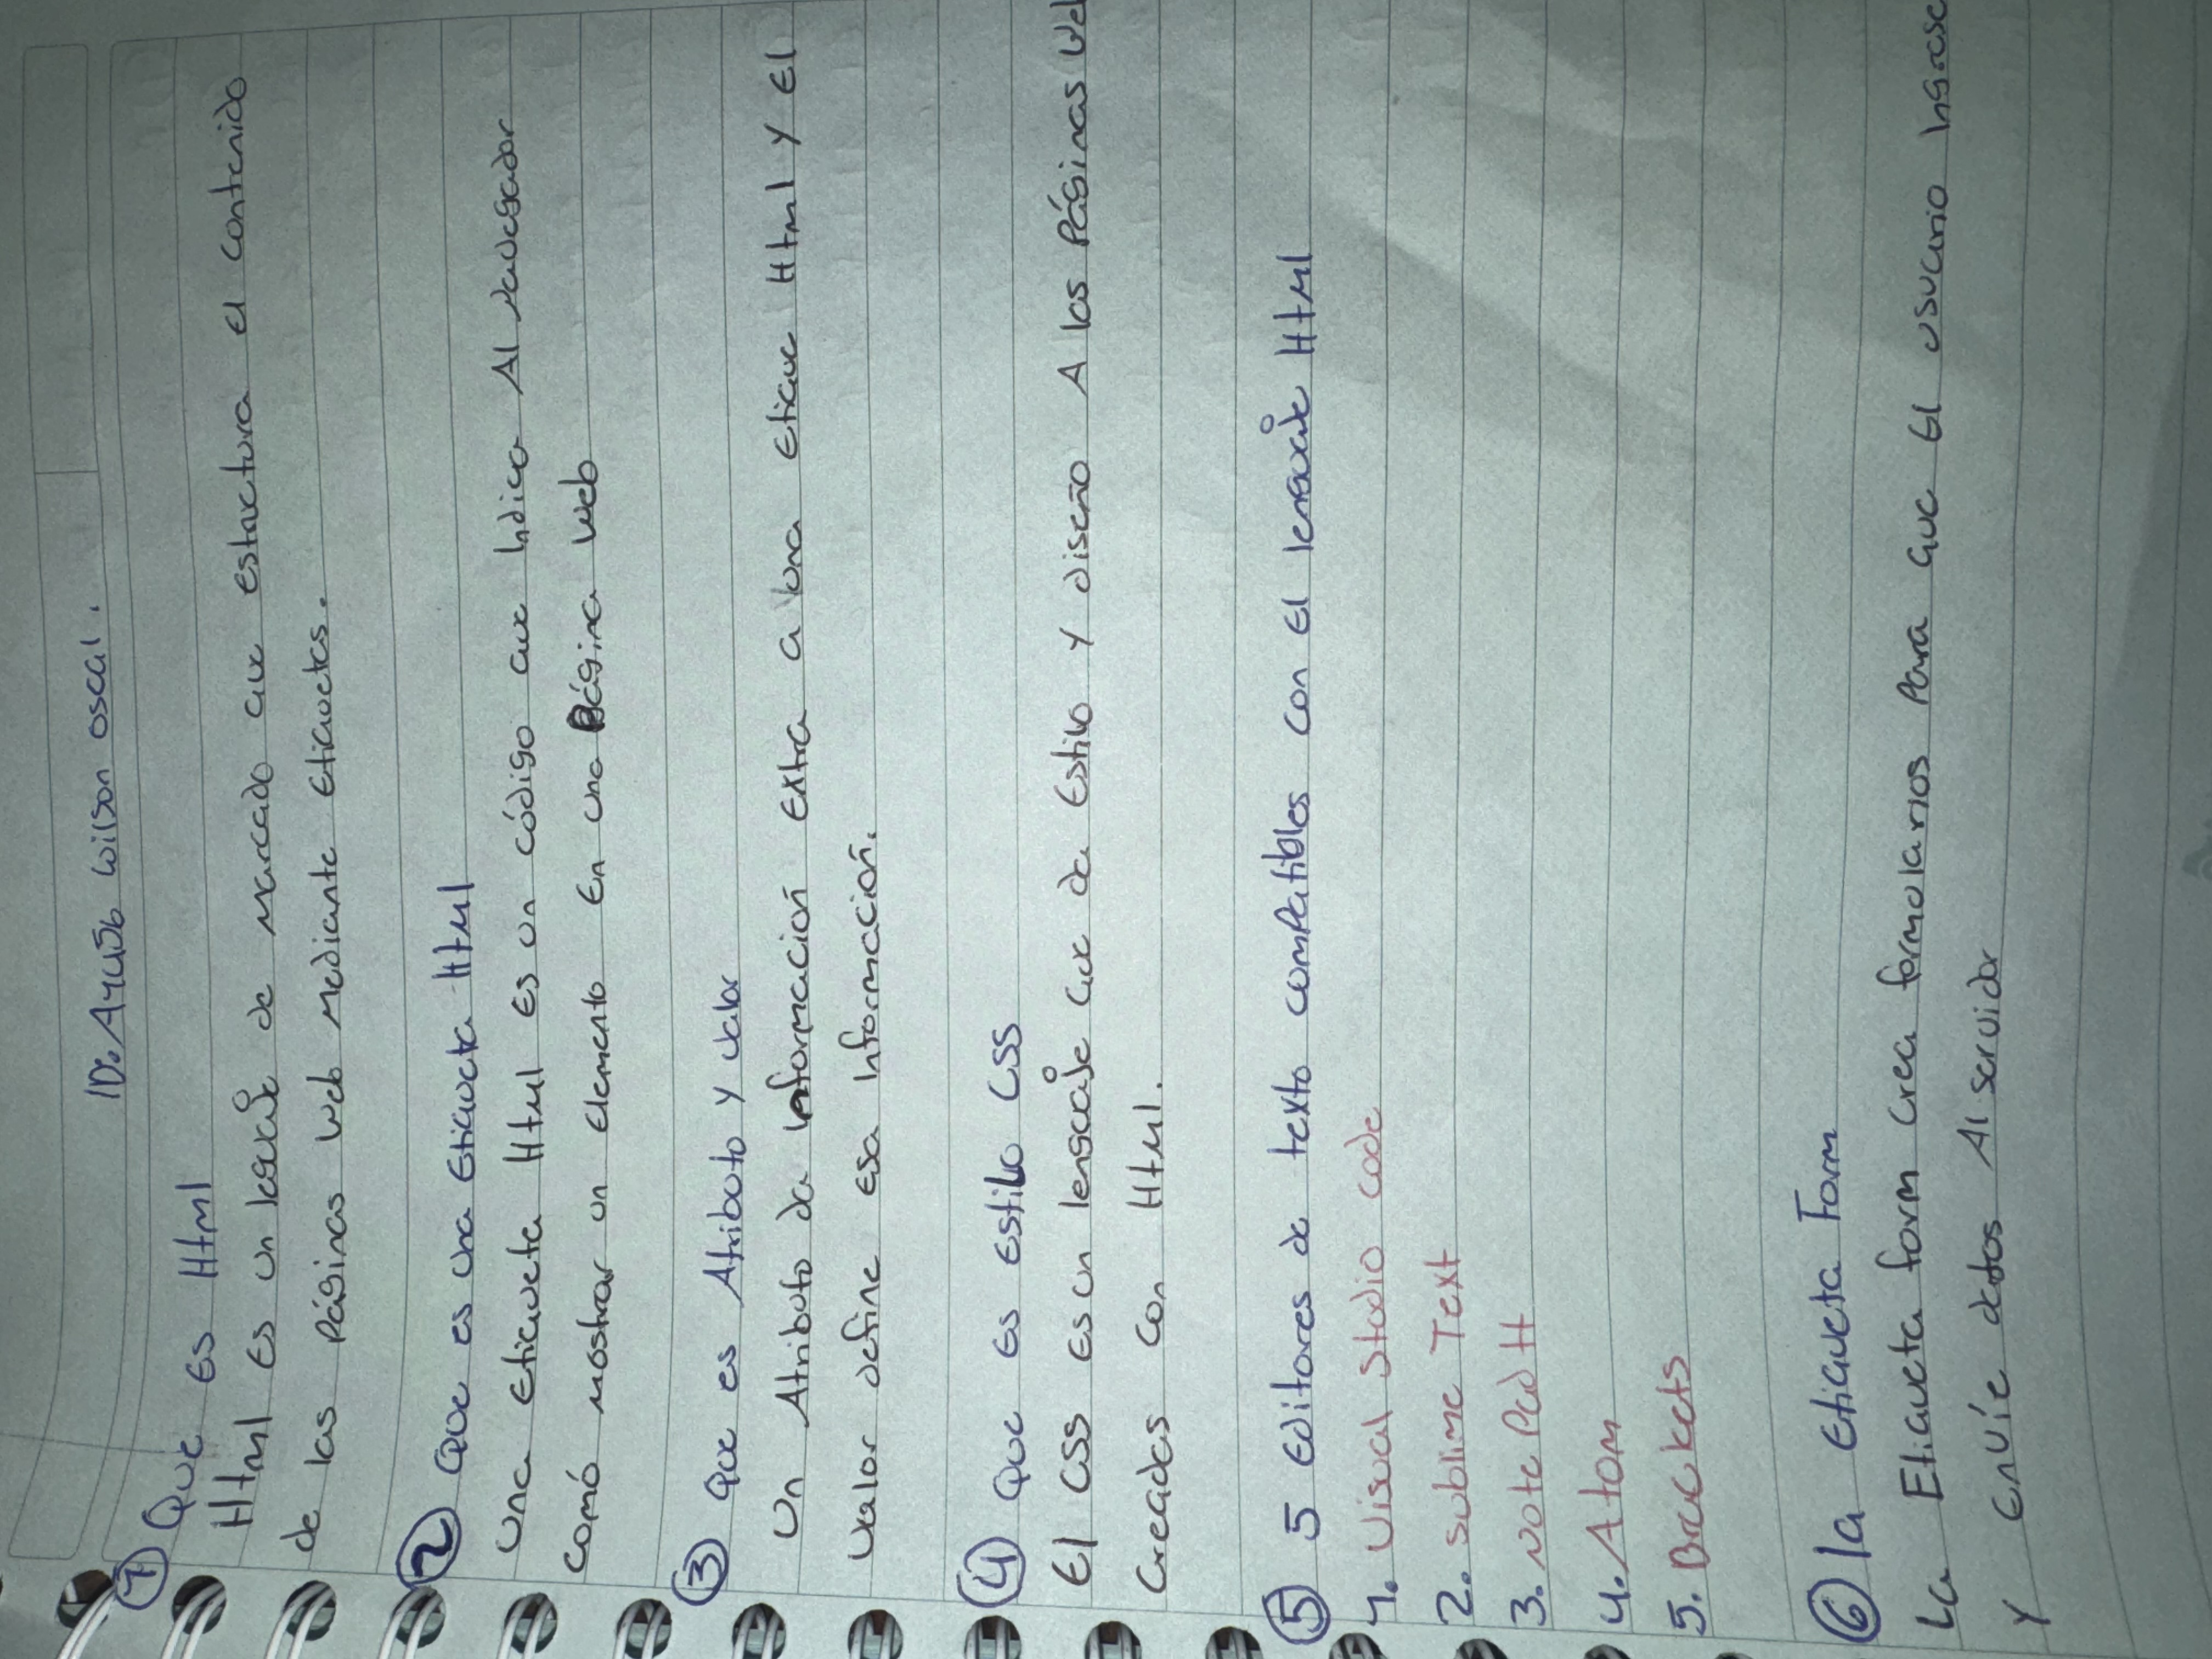 ID: A44456 Wilson oscal.
1 Que es Html
Html Es un leguaje de marcado que estructura el contenido
de las Páginas web mediante Etiquetas.
2 Que es una Etiqueta Html
una Etiqueta Html Es un código que Indica Al navegador
comó mostrar un elemento En una Página web
3 Que es Atributo y valor
Un Atributo da información Extra a una Etique Html y El
valor define esa información.
4 Que Es Estilo CSS
El CSS Es un lenguaje que da Estilo y diseño A las Páginas Web
Creadas con Html.
5 5 Editores de texto compatibles con El lenguaje Html
1. Visual Studio code
2. Sublime Text
3. Note Pad H
4. Atom
5. Brackets
6 la Etiqueta Form
La Etiqueta form crea formularios Para que El usuario Ingrese
y Envíe datos Al servidor